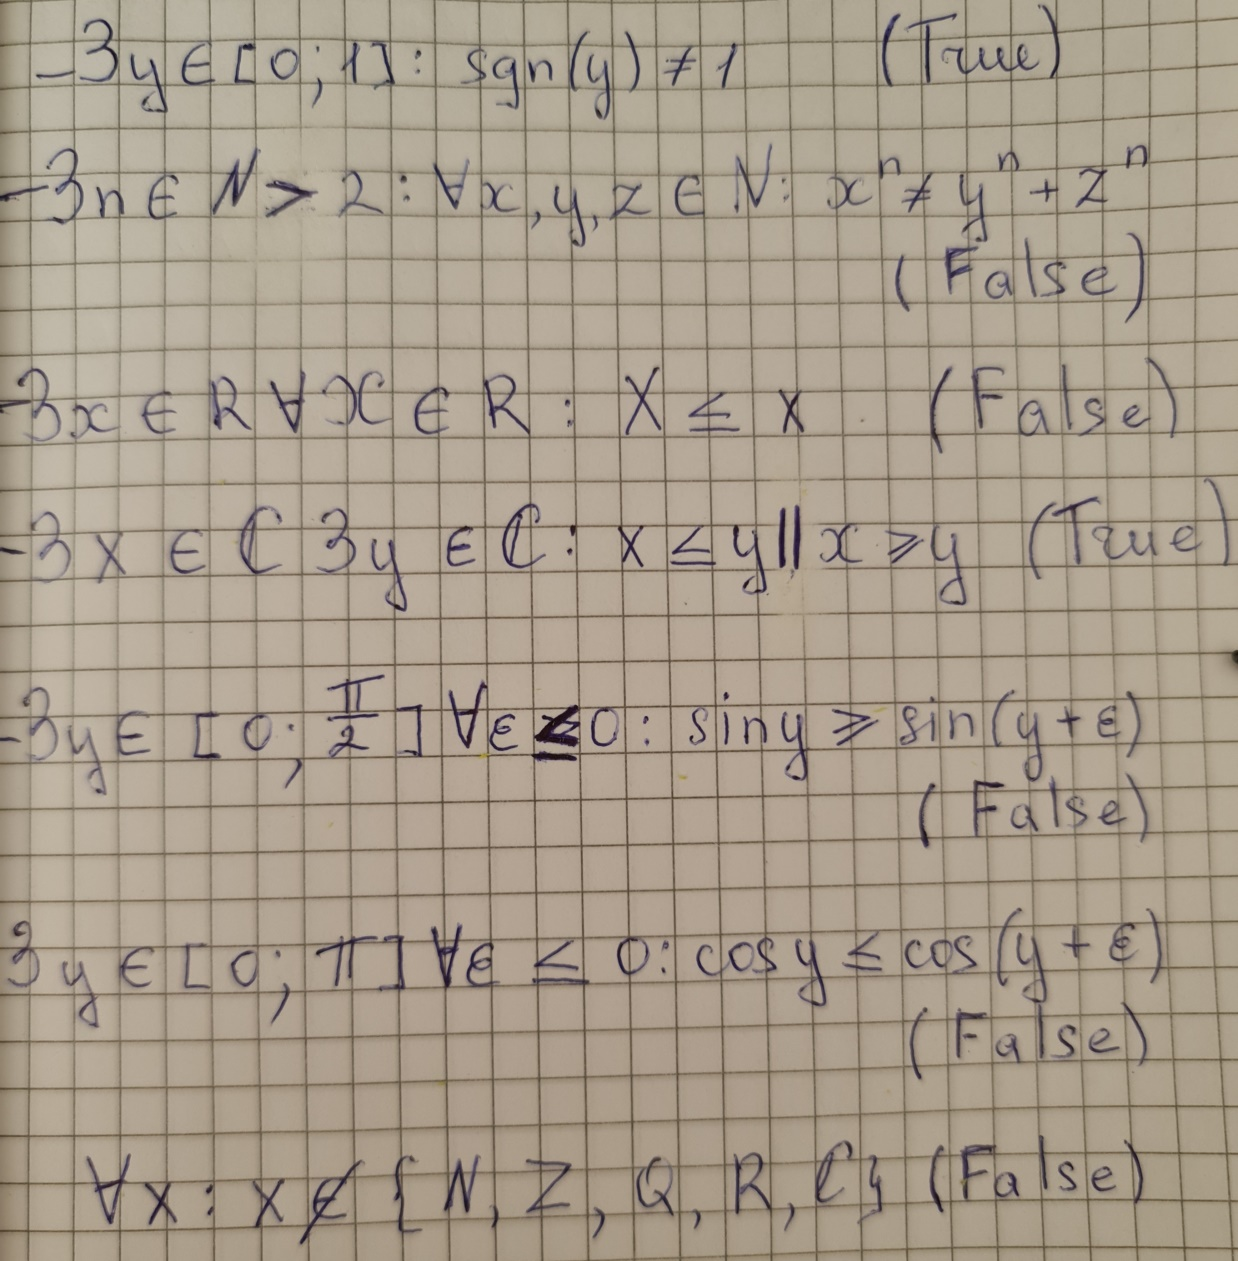 -∃y∈[0;1]: sgn(y)≠1 (True)
-∃n∈N>2: ∀x,y,z∈N: xⁿ≠yⁿ+zⁿ
(False)
-∃x∈R ∀X∈R: X≤x (False)
-∃x∈ℂ ∃y∈ℂ: x≤y||x≥y (True)
-∃y∈[0;π/2] ∀ε≤0: siny≥sin(y+ε)
(False)
∃y∈[0;π] ∀ε≤0: cosy≤cos(y+ε)
(False)
∀x: x∉{N, Z, Q, R, ℂ} (False)